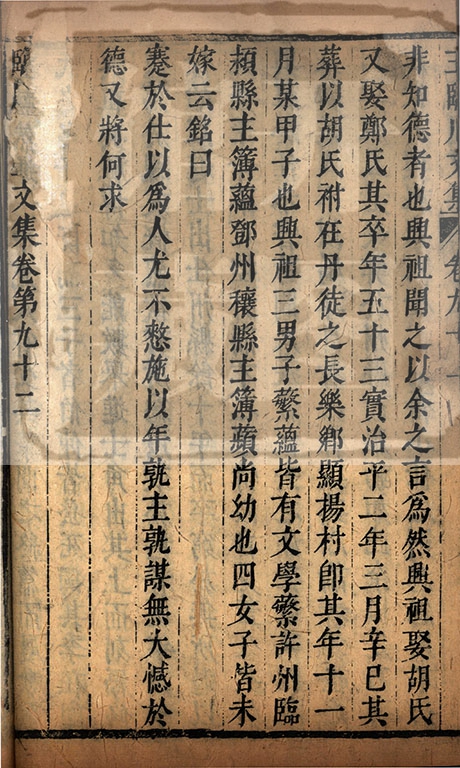 王臨川文集 卷九十
非知德者也興祖聞之以余之言爲然興祖娶胡氏
又娶鄭氏其卒年五十三實治平二年三月辛巳其
葬以胡氏祔在丹徒之長樂鄉顯揚村即其年十一
月某甲子也興祖三男子縈蘊皆有文學縈許州臨
潁縣主簿蘊鄧州穰縣主簿蘋尚幼也四女子皆未
嫁云銘曰
蹇於仕以爲人尤不憖施以年孰主孰謀無大憾於
德又將何求
臨川 文集卷第九十二